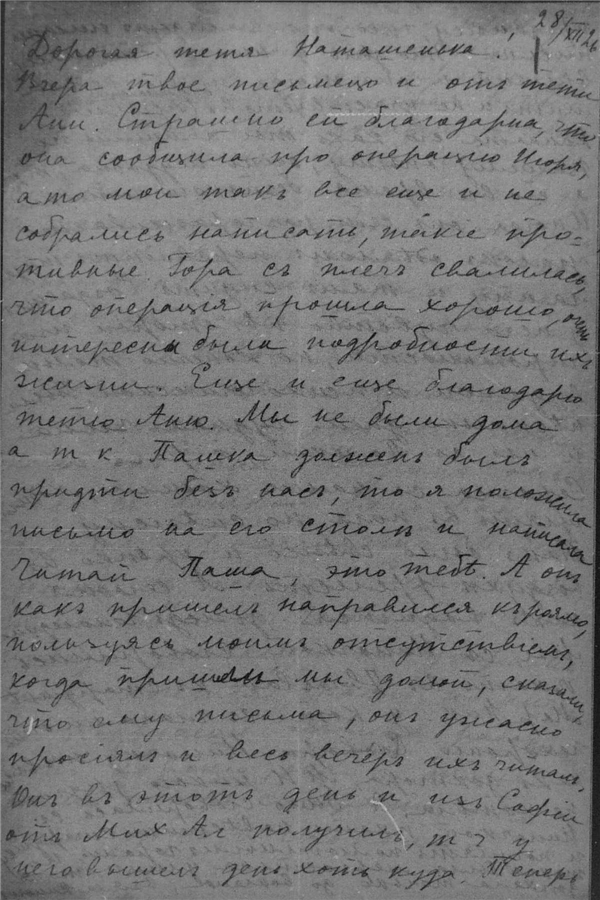 28/XII 26
Дорогая тетя Наташенька!
Вчера твое письмецо и отъ тети
Ани. Страшно ей благодарна, что
она сообщила про операцію Игоря,
а то мои такъ все еще и не
собрались написать, такіе про-
тивные. Гора съ плечъ свалилась,
что операція прошла хорошо, очень
интересны были подробности ихъ
жизни. Еще и еще благодарю
тетю Аню. Мы не были дома
а т к Пашка долженъ былъ
придти безъ насъ, то я положила
письмо на его столъ и написала
Читай Паша, это тебѣ. А онъ
какъ пришелъ направился къ роялю,
пользуясь моимъ отсутствіемъ,
когда пришли мы домой, сказали,
что ему письма, онъ ужасно
просіялъ и весь вечеръ ихъ читалъ.
Онъ въ этотъ день и изъ Софіи
отъ Мих Ал получилъ, т ч у
него вышелъ день хоть куда. Теперь